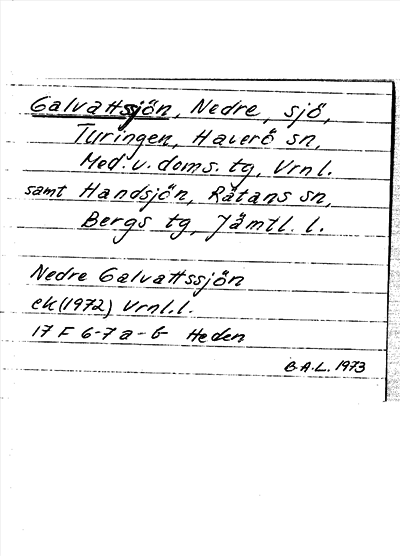 Galvattsjön, Nedre, sjö,
Turingen, Haverö sn,
Med. v. doms. tg, Vrnl.
samt Handsjön, Rätans sn,
Bergs tg, Jämtl. l.
Nedre Galvattssjön
ek (1972) Vrnl. l.
17 F 6-7 a-b Heden
B.A.L. 1973